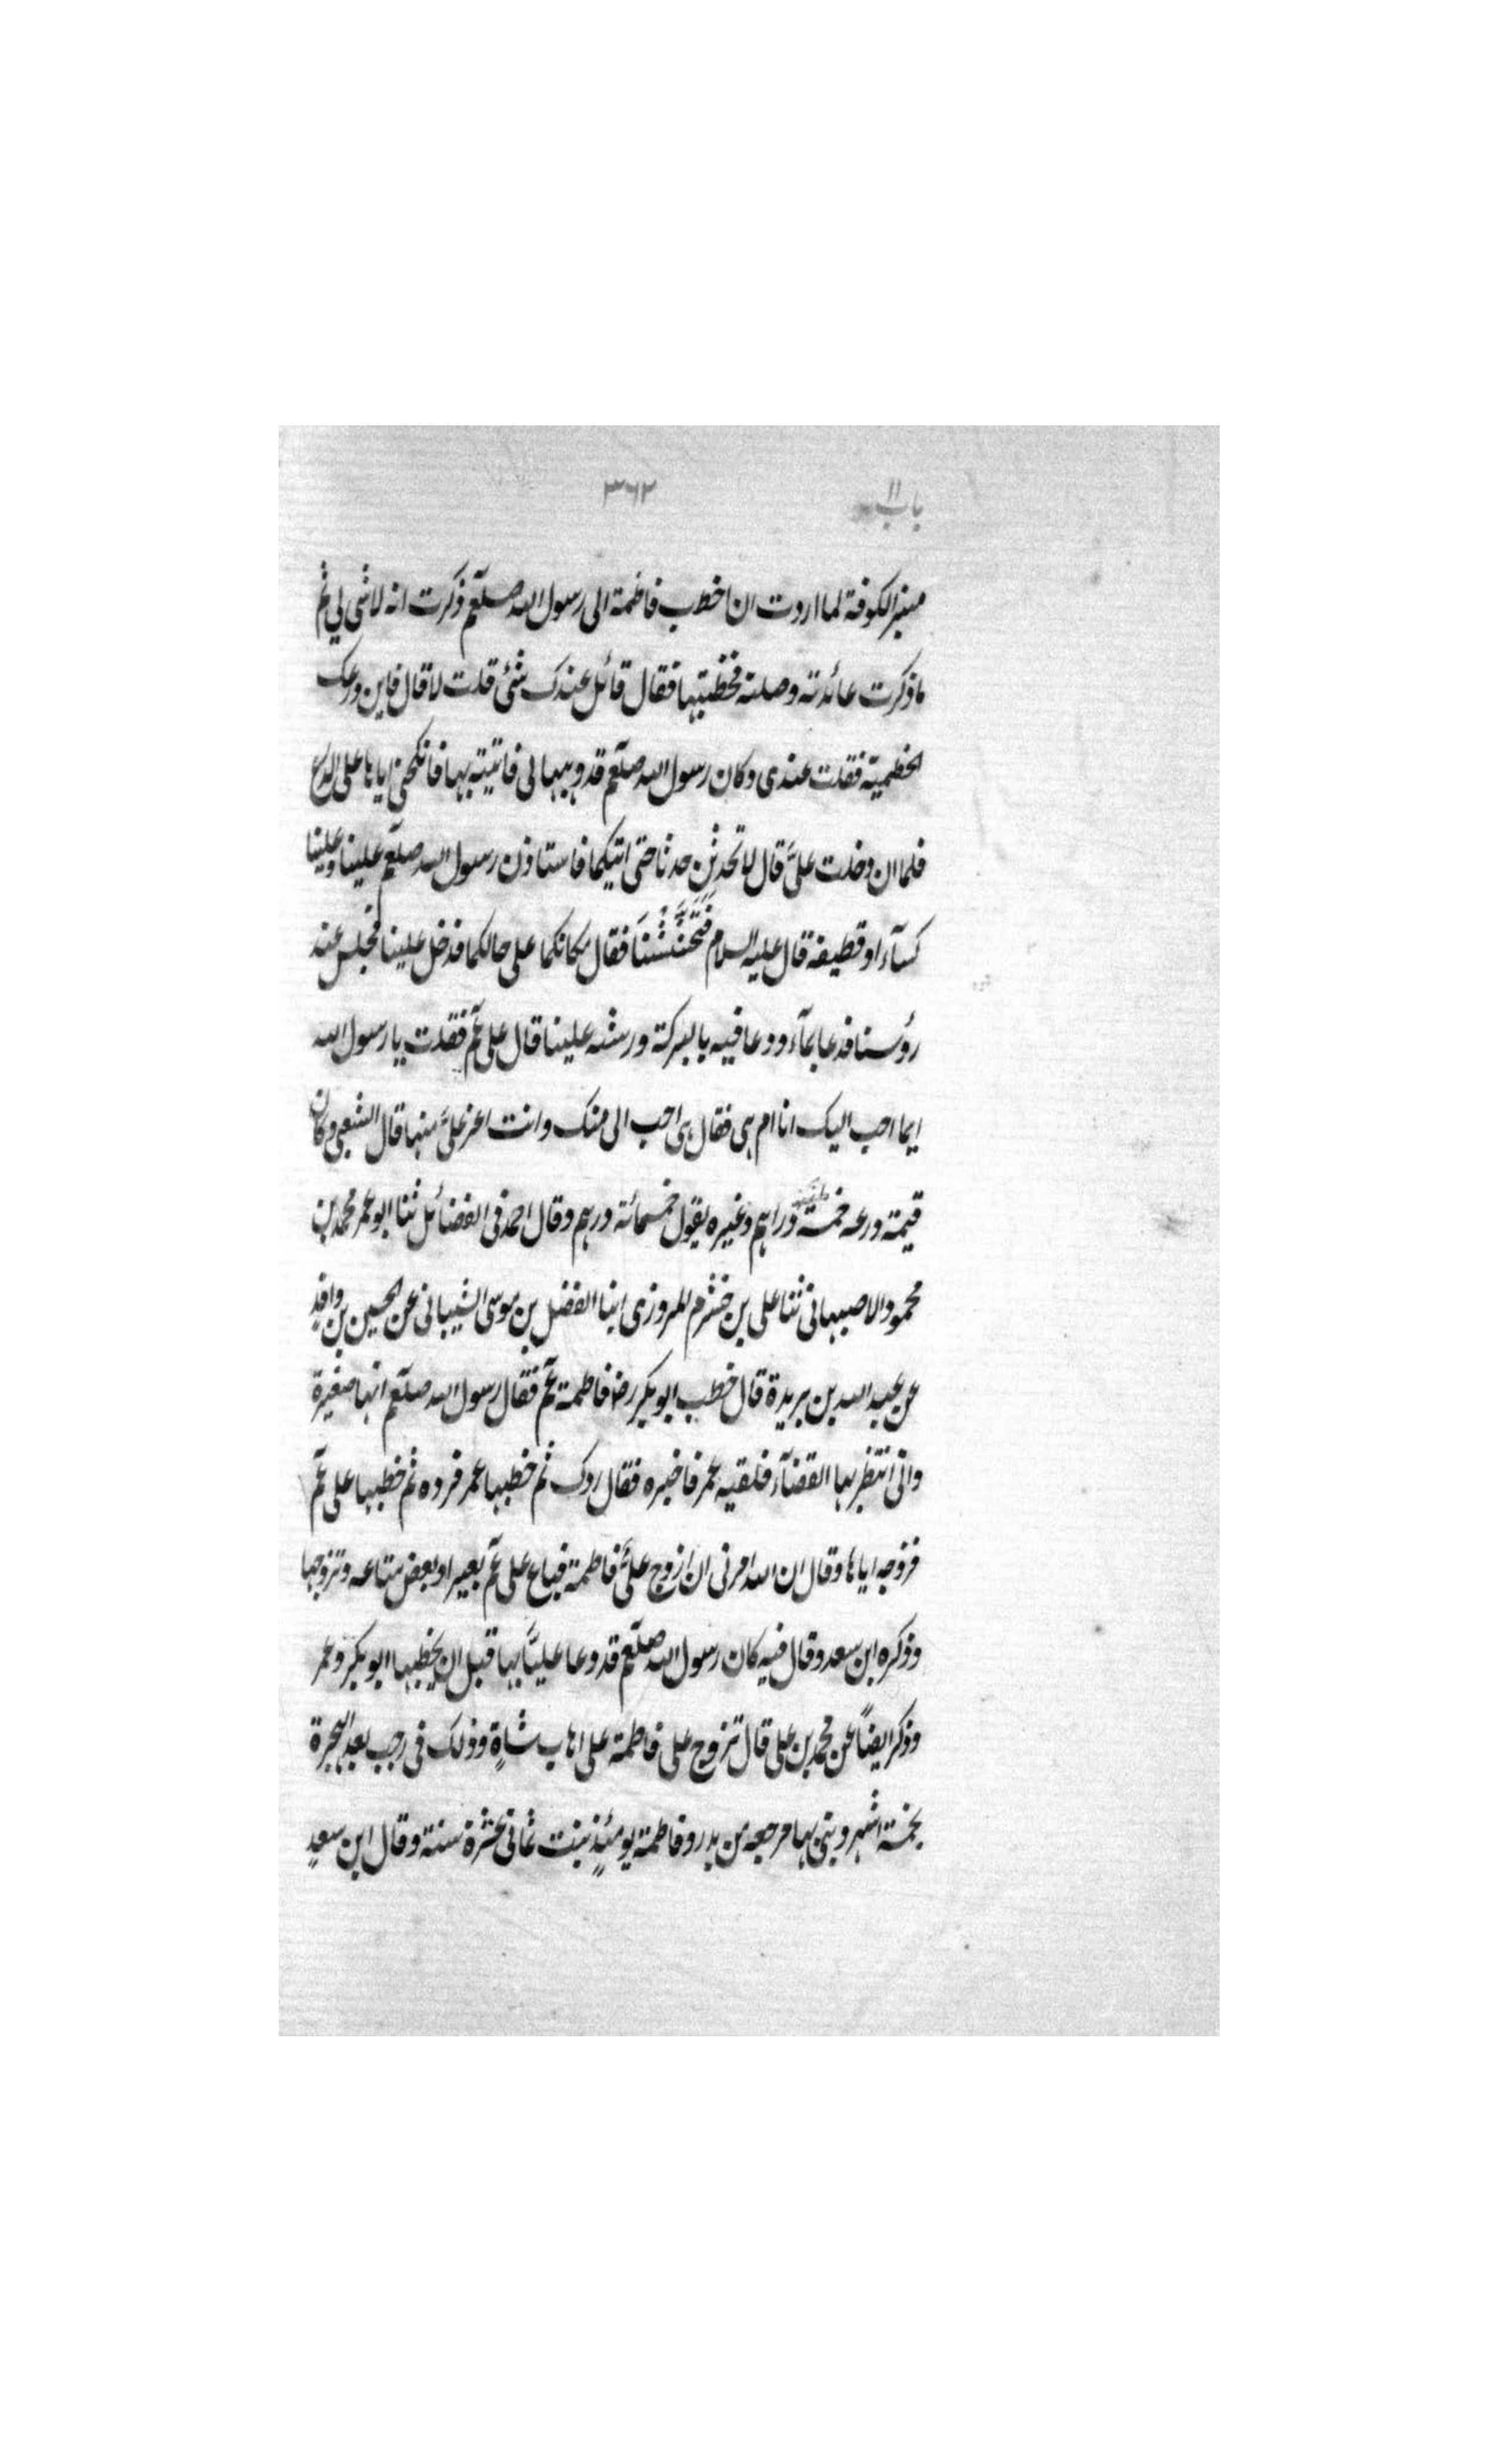 باب ١١ ٣٦٢
منبر الكوفة لما اردت ان اخطب فاطمة الى رسول الله صلعم ذكرت انه لا شئ لي ثم
ما ذكرت عائدته وصلته فخطبتها فقال قائل عندك شئ قلت لا قال فاين درعك
الحطمية فقلت عندى وكان رسول الله صلعم قد وهبها لى فاتيته بها فانكحنى اياها على الدرع
فلما ان دخلت علىّ قال لا تحدثن حدثا حتى اتيكما فاستاذن رسول الله صلعم علينا وعلينا
كسآء او قطيفة قال عليه السلام فتحثّثنا فقال مكانكما على حالكما فدخل علينا فجلس عند
رؤسنا فدعا بمآء ودعا فيه بالبركة ورشه علينا قال على عم فقلت يا رسول الله
ايما احب اليك انا ام هى فقال هى احب الى منك وانت اعز علىّ منها قال الشعبى وكان
قيمة درعه خمسة دراهم وغيره يقول خمسمائة درهم وقال احمد فى الفضائل ثنا ابو عمر محمد بن
محمود الاصبهانى ثنا على بن خشرم المروزى ابنا الفضل بن موسى الشيبانى عن الحسين بن واقدٍ
عن عبد الله بن بريدة قال خطب ابو بكر رضا فاطمة عم فقال رسول الله صلعم انها صغيرة
وانى انتظر بها القضآء فلقيه عمر فاخبره فقال ردك ثم خطبها عمر فرده ثم خطبها على عم
فزوجه اياها وقال ان الله امرنى ان ازوج علىّ فاطمة فباع على عم بعير او بعض متاعه وتزوجها
وذكره ابن سعد وقال فيه كان رسول الله صلعم قد وعا عليّاً بها قبل ان يخطبها ابو بكر وعمر
وذكر ايضاً عن محمد بن على قال تزوج على فاطمة على اهاب شاةٍ وذلك فى رجب بعد الهجرة
بخمسة اشهر وبنى بها مرجعه من بدر وفاطمة يومئذٍ بنت ثمانى عشرة سنة وقال ابن سعدٍ